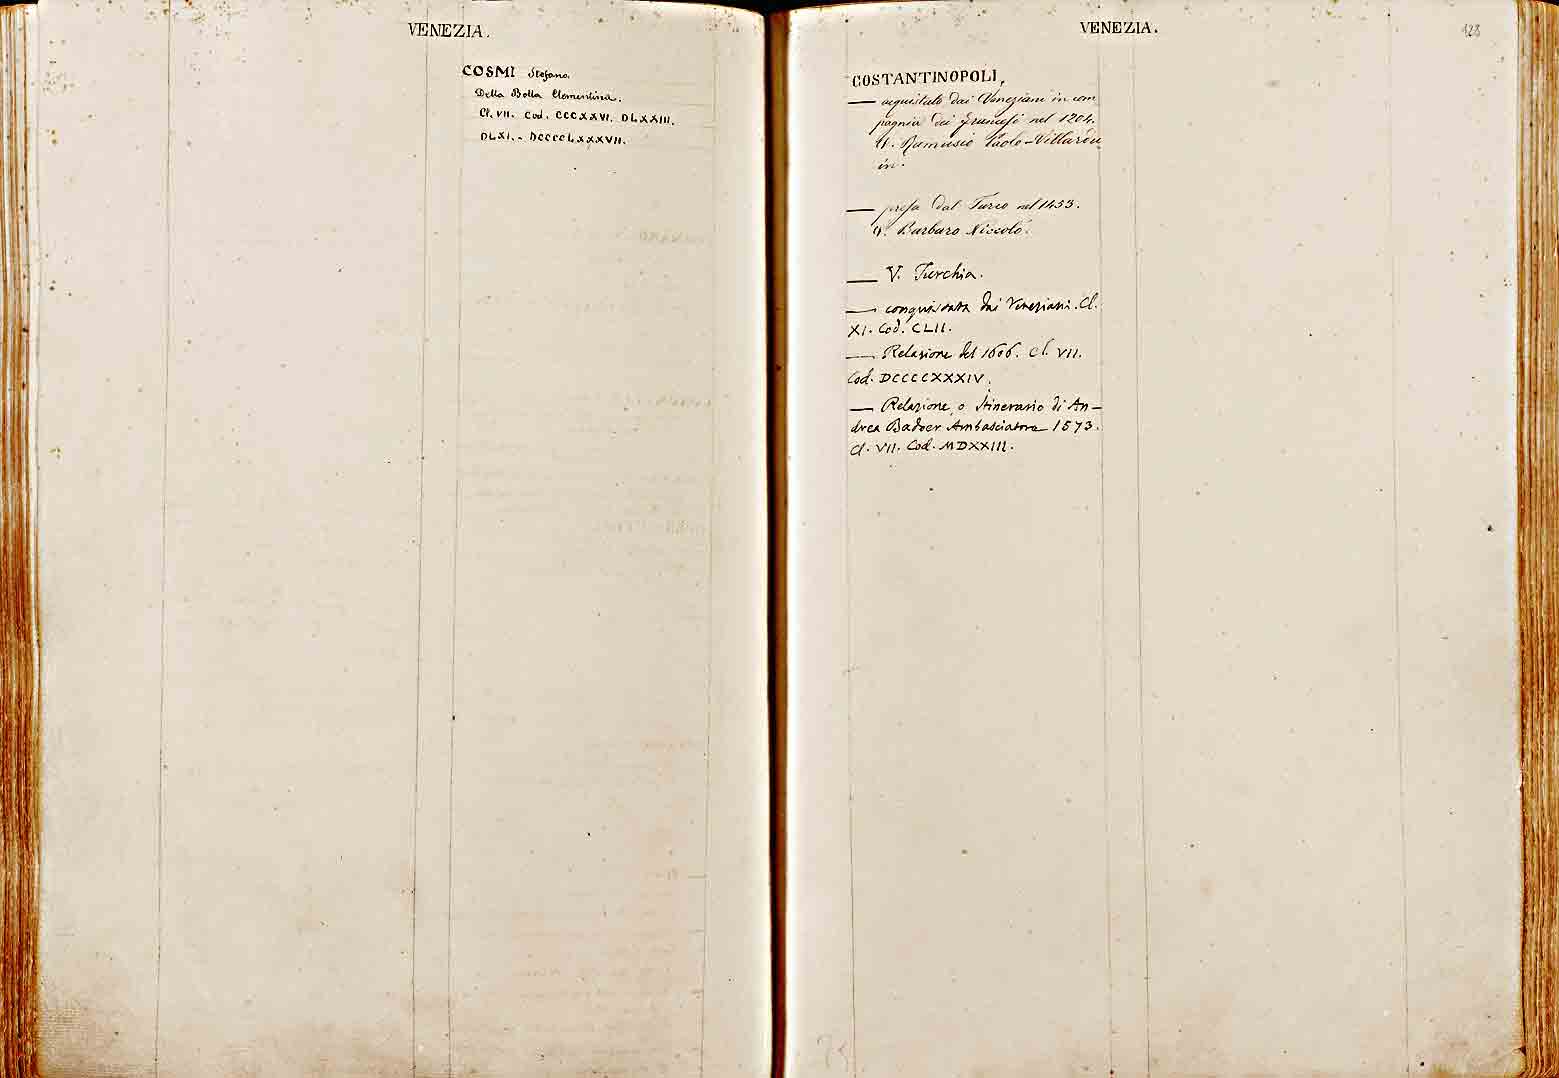 VENEZIA.
COSMI Stefano.
Della Bolla Clementina.
Cl. VII. Cod. CCCXXVI. DLXXIII.
DLXI. - DCCCCLXXXVII.
VENEZIA.
128
COSTANTINOPOLI,
— acquistato dai Veneziani in com
pagnia dei Francesi nel 1204.
V. Ramusio Paolo - Villardu
in.
— presa dal Turco nel 1453.
V. Barbaro Niccolò.
— V. Turchia.
— conquistata dai Veneziani. Cl.
XI. Cod. CLII.
— Relazione del 1606. Cl. VII.
Cod. DCCCCXXXIV.
— Relazione, o Itinerario di An-
drea Badoer Ambasciatore 1573.
Cl. VII. Cod. MDXXIII.